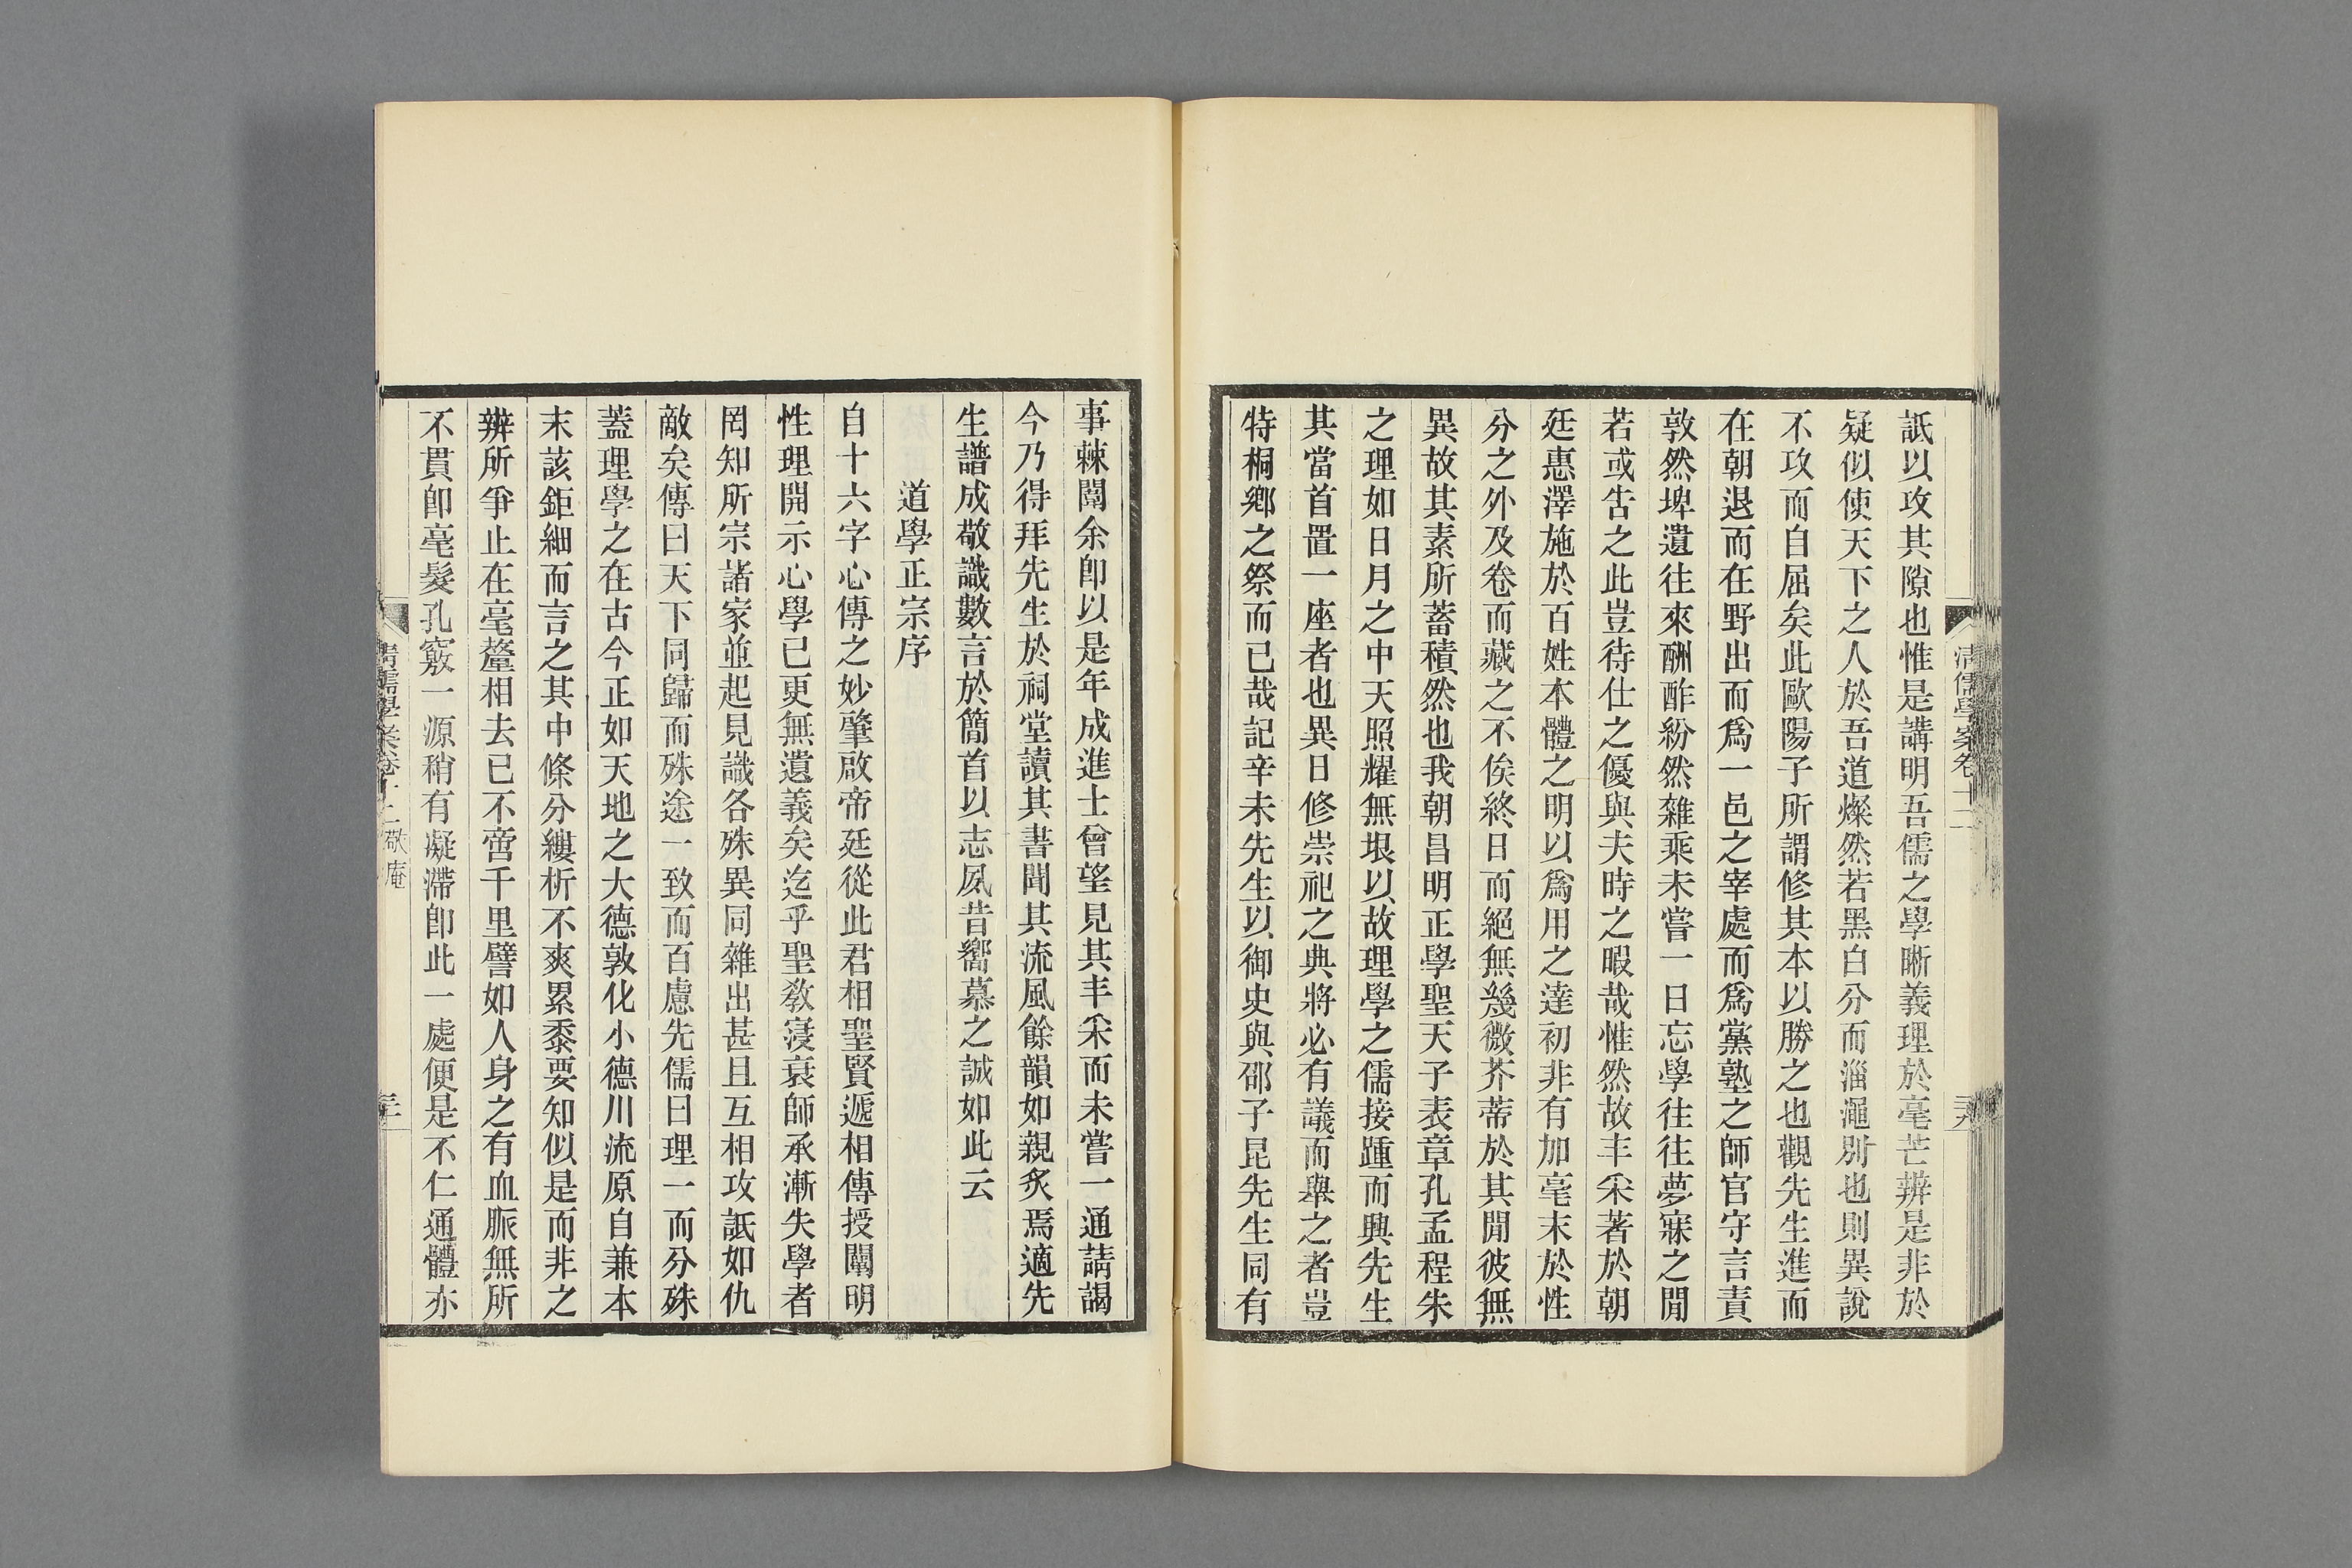 詆以攻其隙也惟是講明吾儒之學晰義理於毫芒辨是非於
疑似使天下之人於吾道燦然若黑白分而淄澠別也則異說
不攻而自屈矣此歐陽子所謂修其本以勝之也觀先生進而
在朝退而在野出而爲一邑之宰處而爲黨塾之師官守言責
敦然埤遺往來酬酢紛然雜乘未嘗一日忘學往往夢寐之閒
若或告之此豈待仕之優與夫時之暇哉惟然故丰采著於朝
廷惠澤施於百姓本體之明以爲用之達初非有加毫末於性
分之外及卷而藏之不俟終日而絕無幾微芥蒂於其閒彼無
異故其素所蓄積然也我朝昌明正學聖天子表章孔孟程朱
之理如日月之中天照耀無垠以故理學之儒接踵而興先生
其當首置一座者也異日修崇祀之典將必有議而舉之者豈
特桐鄉之祭而已哉記辛未先生以御史與邵子昆先生同有
事棘闈余卽以是年成進士曾望見其丰采而未嘗一通請謁
今乃得拜先生於祠堂讀其書聞其流風餘韻如親炙焉適先
生譜成敬識數言於簡首以志夙昔嚮慕之誠如此云
道學正宗序
自十六字心傳之妙肇啟帝廷從此君相聖賢遞相傳授闡明
性理開示心學已更無遺義矣迄乎聖敎寖衰師承漸失學者
罔知所宗諸家並起見識各殊異同雜出甚且互相攻詆如仇
敵矣傳曰天下同歸而殊途一致而百慮先儒曰理一而分殊
蓋理學之在古今正如天地之大德敦化小德川流原自兼本
末該鉅細而言之其中條分縷析不爽累黍要知似是而非之
辨所爭止在毫釐相去已不啻千里譬如人身之有血脈無所
不貫卽毫髮孔竅一源稍有凝滯卽此一處便是不仁通體亦
清儒學案卷十二 敬庵